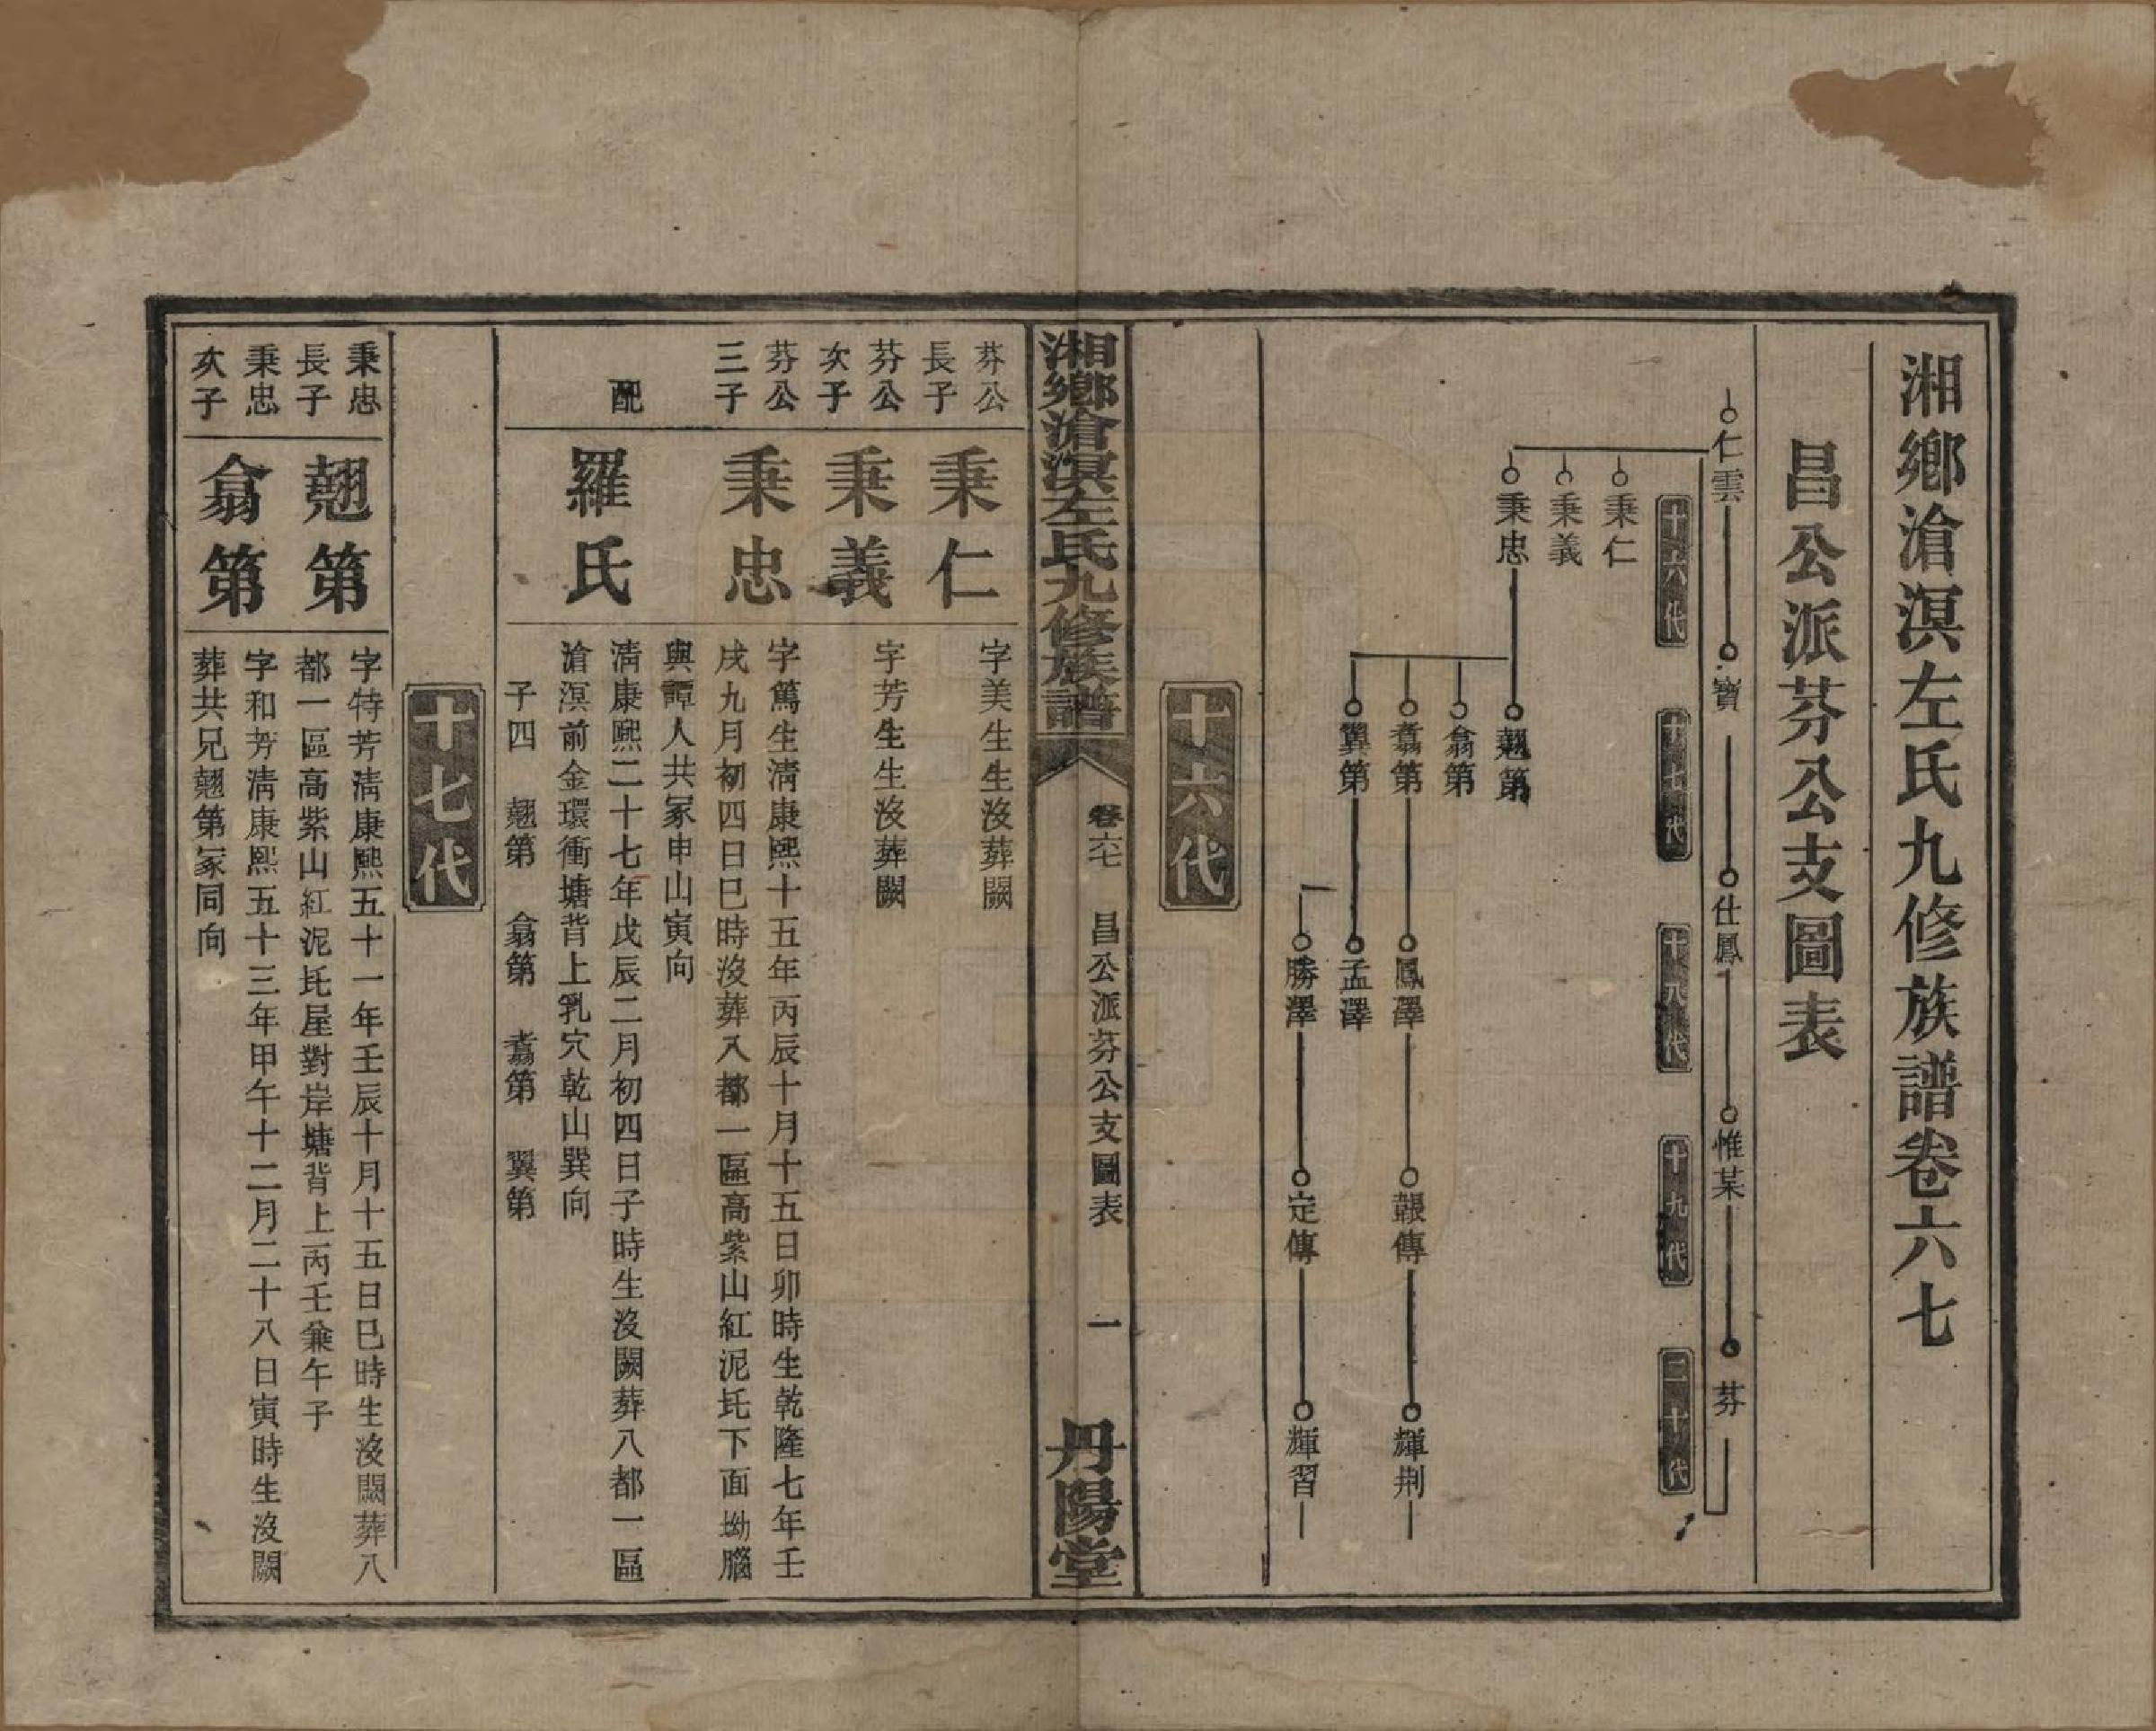 湘鄉滄溟左氏九修族譜卷六七
昌公派芬公支圖表
仁雲
寶
仕鳳
惟某
芬
十六代
十七代
十八代
十九代
二十代
秉仁
秉義
秉忠
翹第
翕第
翥第
鳳澤
輾傳
輝荆
翼第
孟澤
勝澤
定傳
輝習
十六代
湘鄉滄溟左氏九修族譜
卷六七
昌公派芬公支圖表
一
丹陽堂
芬公
長子
秉仁
字美生生沒葬闕
芬公
次子
秉義
字芳生生沒葬闕
芬公
三子
秉忠
字篤生清康熙十五年丙辰十月十五日卯時生乾隆七年壬
戌九月初四日巳時沒葬八都一區高紫山紅泥圫下面坳腦
與譚人共冢申山寅向
配
羅氏
清康熙二十七年戊辰二月初四日子時生沒闕葬八都一區
滄溟前金環衝塘背上乳穴乾山巽向
子四 翹第 翕第 翥第 翼第
十七代
秉忠
長子
翹第
字特芳清康熙五十一年壬辰十月十五日巳時生沒闕葬八
都一區高紫山紅泥圫屋對岸塘背上丙壬兼午子
秉忠
次子
翕第
字和芳清康熙五十三年甲午十二月二十八日寅時生沒闕
葬共兄翹第冢同向